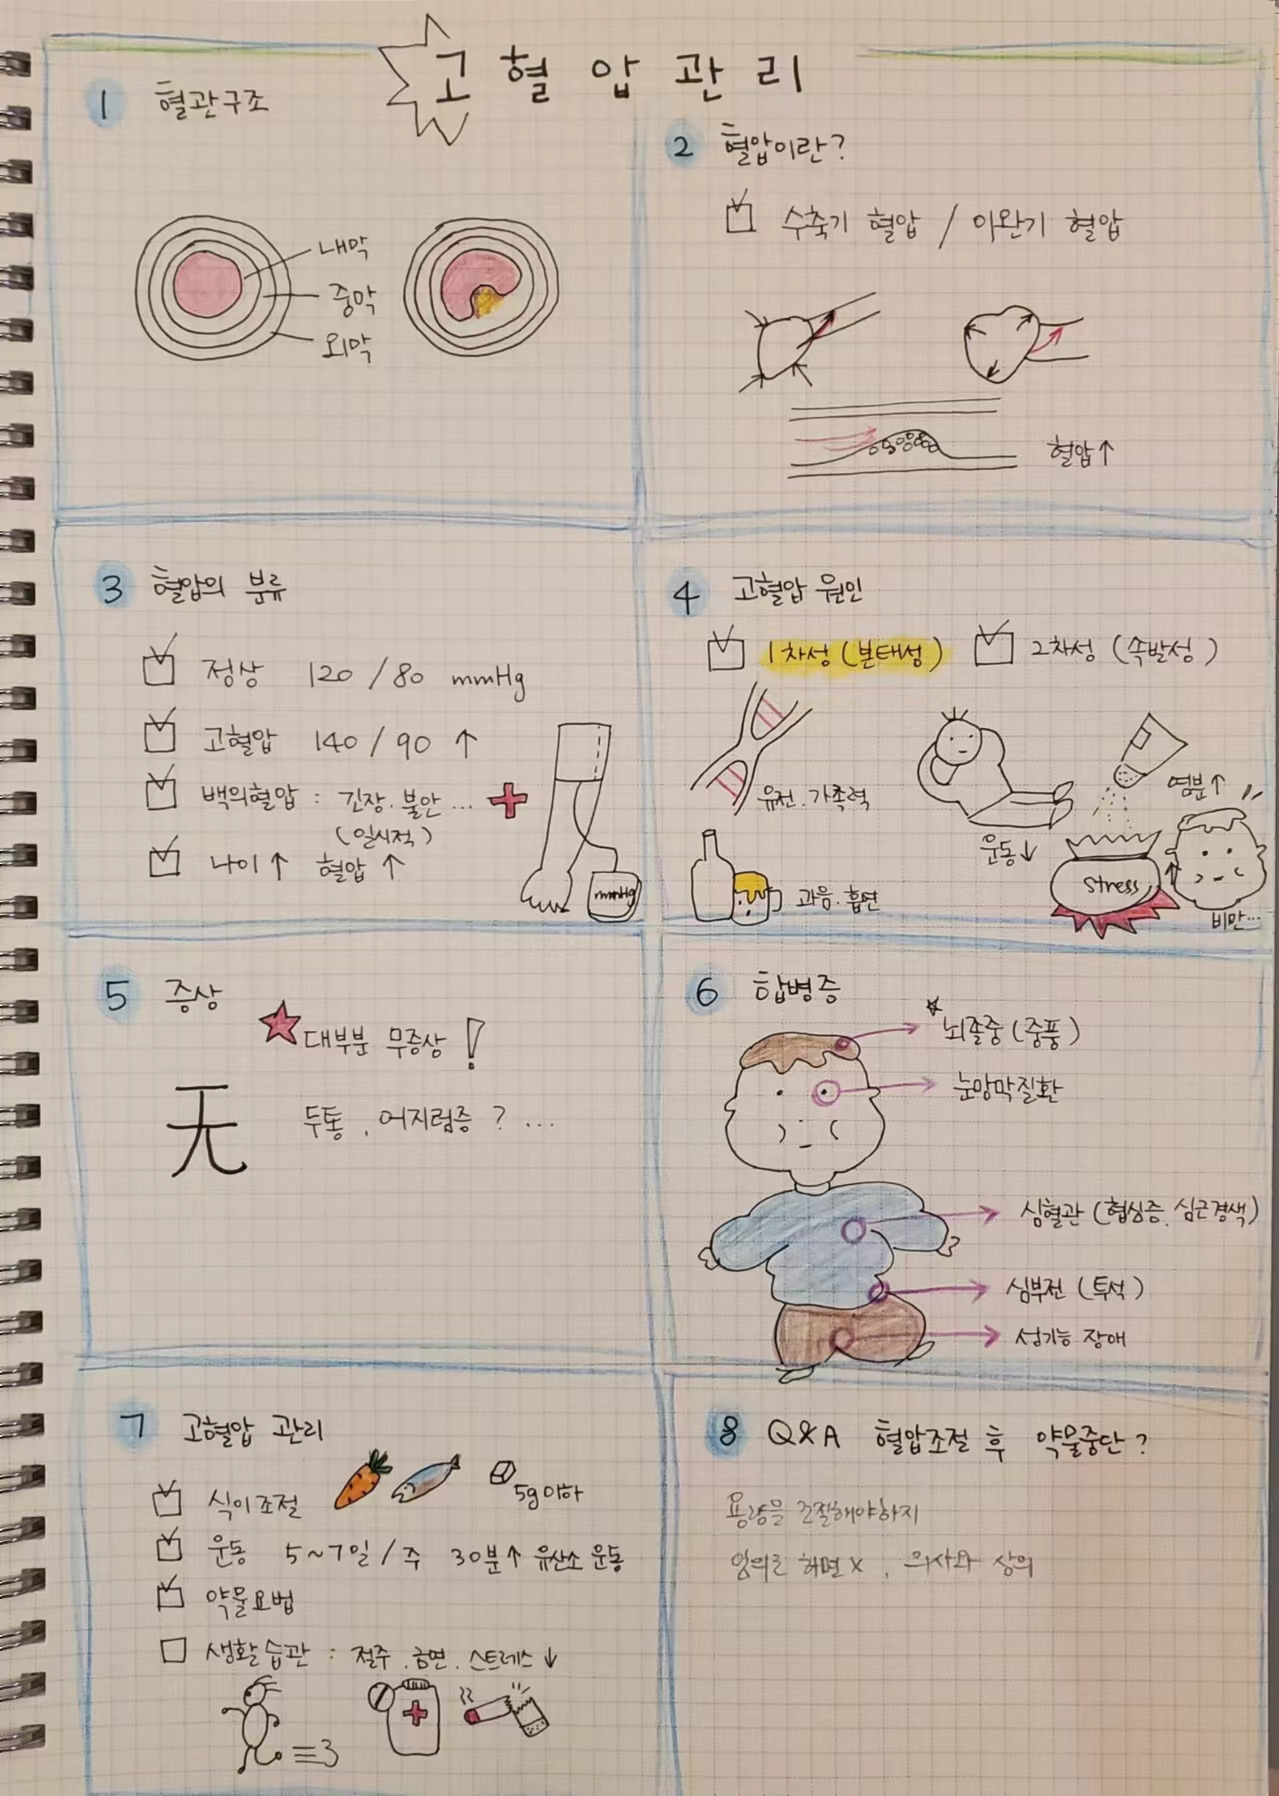 고혈압관리
1 혈관구조
내막
중막
외막
2 혈압이란?
수축기 혈압 / 이완기 혈압
혈압↑
3 혈압의 분류
정상 120 / 80 mmHg
고혈압 140 / 90 ↑
백의혈압 : 긴장. 불안 ...
(일시적)
나이↑ 혈압 ↑
mmHg
4 고혈압 원인
1차성 (본태성) 2차성 (속발성)
유전. 가족력
운동↓
염분↑
stress
비만...
과음. 흡연
5 증상
대부분 무증상 !
无
두통 , 어지럼증 ? ...
6 합병증
뇌졸중 (중풍)
눈망막질환
심혈관 (협심증. 심근경색)
심부전 (투석)
성기능 장애
7 고혈압 관리
식이조절
5g이하
운동 5~7일 / 주 30분↑ 유산소 운동
약물요법
생활습관 : 절주 . 금연 . 스트레스↓
8 Q&A 혈압조절 후 약물중단?
용량을 조절해야하지
임의로 하면 x , 의사와 상의